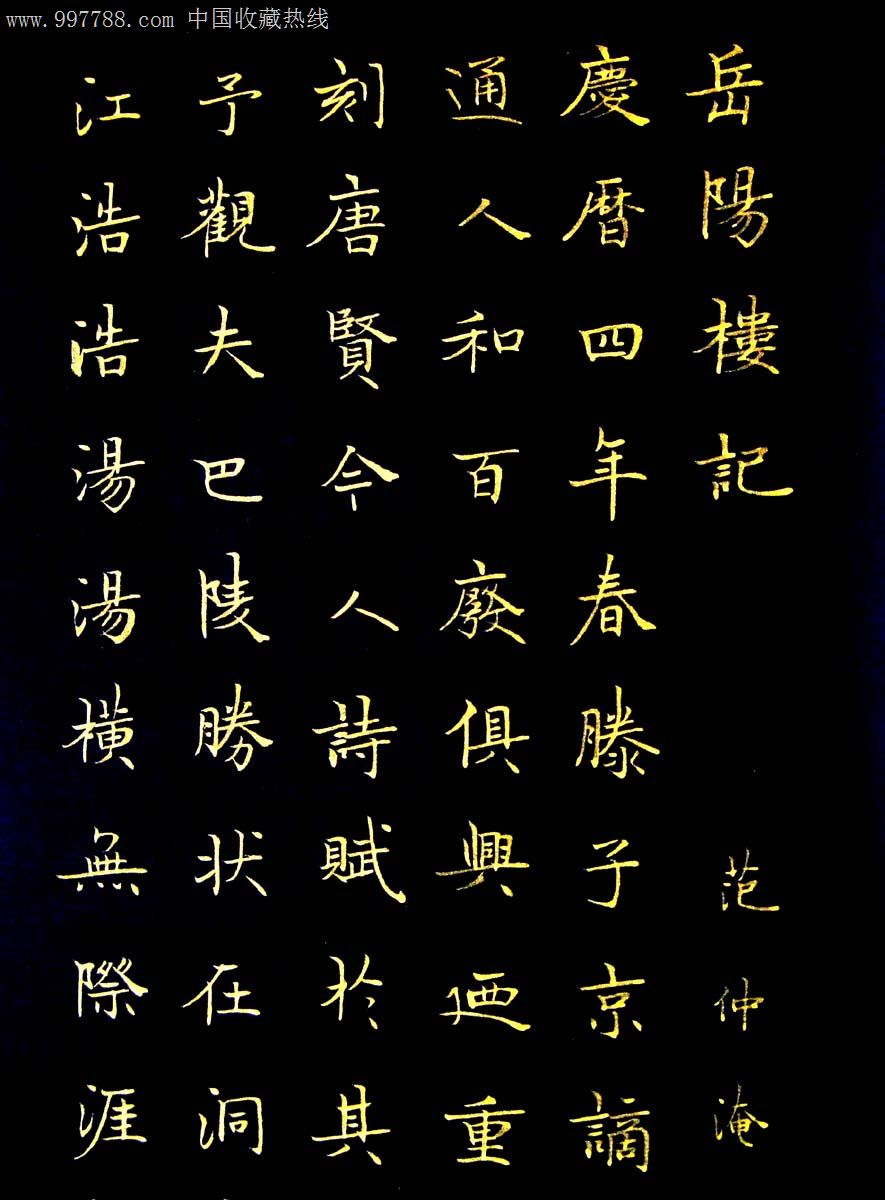 www.997788.com 中国收藏热线
岳陽樓記 范仲淹
慶曆四年春滕子京謫
通人和百廢俱興廼重
刻唐賢今人詩賦於其
予觀夫巴陵勝状在洞
江浩浩湯湯橫無際涯